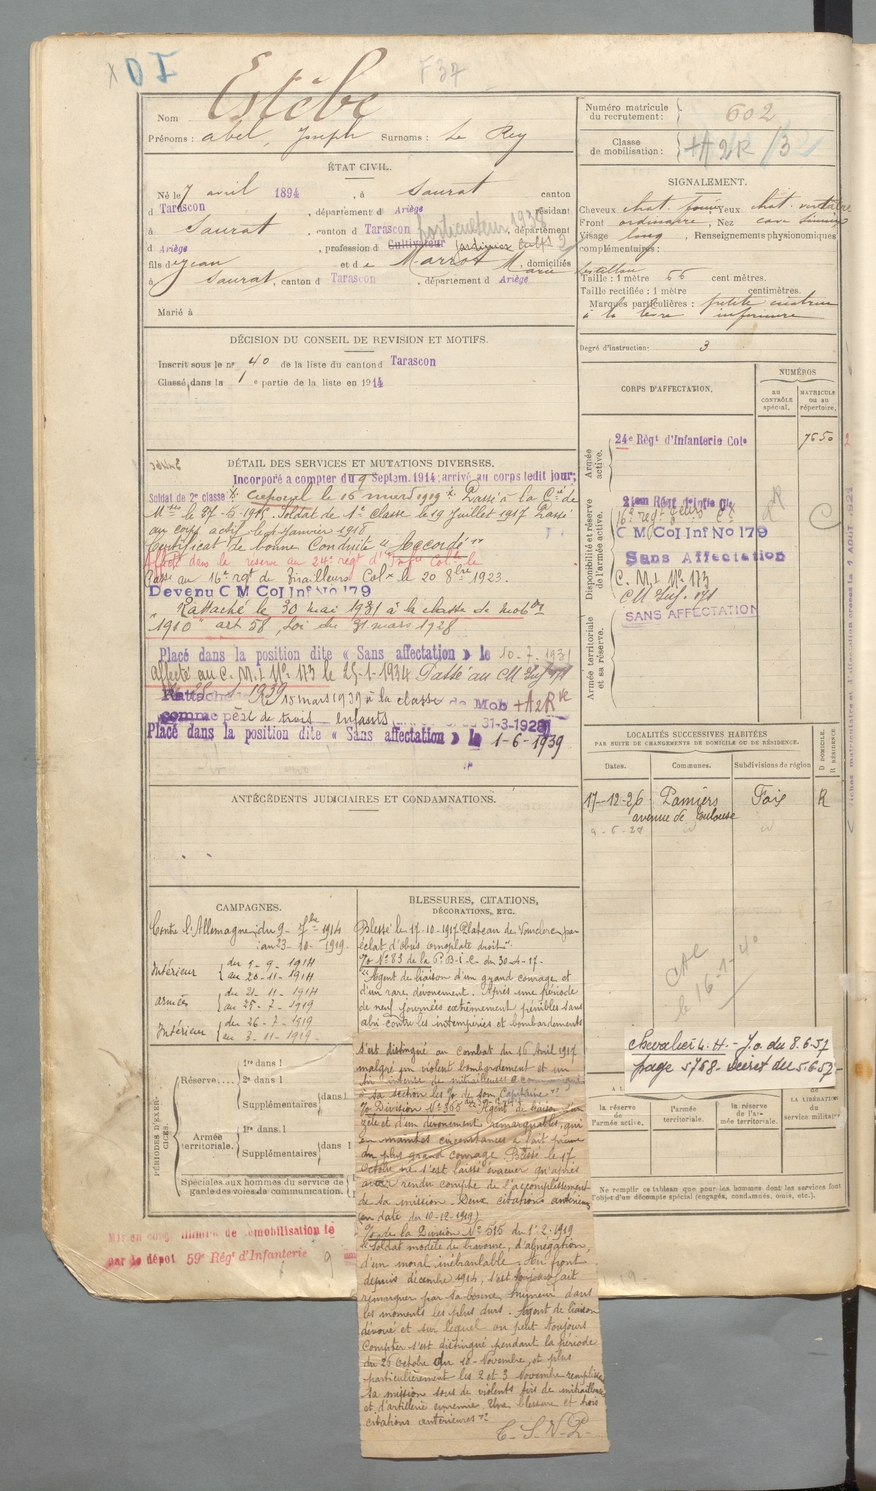 x OI
F37
Nom Estèbe
Prénoms: abel, Joseph Surnoms: Le Rey
Numéro matricule du recrutement: 602
Classe de mobilisation: +A 2R /3
ÉTAT CIVIL.
Né le 7 avril 1894, à Saurat canton
d Tarascon, département d Ariège résidant
à Saurat, canton d Tarascon département
d Ariège, profession d Cultivateur jardinier
fils d e Jean et de Marrot Marie domiciliés
à Saurat, canton d Tarascon, département d Ariège
Marié à
SIGNALEMENT.
Cheveux chat. Yeux chat.
Front ordinaire, Nez
Visage long, Renseignements physionomiques
complémentaires:
Taille: 1 mètre 66 cent mètres.
Taille rectifiée: 1 mètre centimètres.
Marques particulières: petite
à la lèvre inférieure
Degré d'instruction: 3
DÉCISION DU CONSEIL DE REVISION ET MOTIFS.
Inscrit sous le n° 40 de la liste du canton d Tarascon
Classé dans la 1e partie de la liste en 1914
DÉTAIL DES SERVICES ET MUTATIONS DIVERSES.
Incorporé a compter du 9 Septem. 1914; arrivé au corps ledit jour;
Soldat de 2e classe Caporal le 16 mars 1919 Passé à la Cie de
Mtes le 27-6-1916. Soldat de 1e classe le 19 Juillet 1917 Passé
au corps actif le 1 Janvier 1918
Certificat de bonne Conduite "Accordé"
Affecté dans la réserve au 24e régt d'Infrie Colle le
Passé au 16e régt de Tirailleurs Colx le 20 8bre 1923.
Devenu C M Col Inf No 179
Rattaché le 30 mai 1931 à la classe de mobon
"1910" art 58, Loi du 31 mars 1928
Placé dans la position dite « Sans affectation » le 10-7-1931
Affecté au C. M. I. N° 173 le 25-1-1934 Passé au CM Inf 171
Rattaché le 15 mars 1939 à la classe de Mob +A2R
comme père de trois enfants 31-3-1928
Placé dans la position dite « Sans affectation » le 1-6-1939
CORPS D'AFFECTATION.
NUMÉROS
AU CONTRÔLE SPÉCIAL.
MATRICULE OU AU RÉPERTOIRE.
Armée active.
24e Régt d'Infanterie Cole
7650
Disponibilité et réserve de l'armée active.
C M Col Inf No 179
Sans Affectation
C. M. I. N° 173
CM Inf. 171
SANS AFFECTATION
Armée territoriale et sa réserve.
LOCALITÉS SUCCESSIVES HABITÉES
PAR SUITE DE CHANGEMENTS DE DOMICILE OU DE RÉSIDENCE.
Dates. Communes. Subdivisions de région D DOMICILE. R RÉSIDENCE.
17-12-26 Pamiers Foix R
avenue de Toulouse
ANTÉCÉDENTS JUDICIAIRES ET CONDAMNATIONS.
CAMPAGNES.
Contre l'Allemagne; du 9-7bre 1914
au 23-10-1919.
Intérieur du 9-9-1914
au 20-11-1914
armées du 21-11-1914
au 25-7-1919
Intérieur du 26-7-1919
au 3-11-1919
BLESSURES, CITATIONS,
DÉCORATIONS, ETC.
Blessé le 17-10-1917 Plateau de Vauclerc par
éclat d'obus omoplate droit".
O/ N° 83 de la du 30-4-17-
"Agent de liaison d'un grand courage et
d'un rare dévouement. Après une période
de neuf journées extrêmement pénibles sans
abri contre les intempéries et bombardements
s'est distingué au combat du 16 Avril 1917
malgré un violent bombardement et un
tir intense de mitrailleuses
à sa section les O/ de son Capitaine"
O/ Division N° Agent de liaison d'un
zèle et d'un dévouement remarquables, qui
en maintes circonstances a fait preuve
du plus grand courage. Blessé le 17
Octobre ne s'est laissé évacuer qu'après
avoir rendu compte de l'accomplissement
de sa mission. Deux citations antérieures
(en date du 10-12-1917)
O/ de la Division N° 515 du 1er-2-1919
"Soldat modèle de bravoure, d'abnégation,
d'un moral inébranlable. Au front
depuis décembre 1914, s'est toujours fait
remarquer par sa bonne humeur dans
les moments les plus durs. Agent de liaison
dévoué et sur lequel on peut toujours
compter s'est distingué pendant la période
du 26 Octobre au 10 Novembre, et plus
particulièrement les 2 et 3 Novembre remplissant
sa mission sous de violents tirs de mitrailleuses
et d'artillerie ennemie. Une blessure et trois
citations antérieures"
C. S. V. P.
CAC
le 16-1-40
Chevalier L. H. - J.o. du 8.6.52
page 5768- décret du 5.6.52-
PÉRIODES D'EXERCICES.
Réserve....
1re dans l
2e dans l
Supplémentaires dans l
Armée territoriale.
1re dans l
Supplémentaires dans l
Spéciales aux hommes du service de garde des voies de communication.
la réserve de l'armée active.
l'armée territoriale.
la réserve de l'armée territoriale.
LA LIBÉRATION du service militaire
Ne remplir ce tableau que pour les hommes dont les services font
l'objet d'un décompte spécial (engagés, condamnés, omis, etc.).
Mis en congé illimité de démobilisation le
par le dépôt 59e Régt d'Infanterie